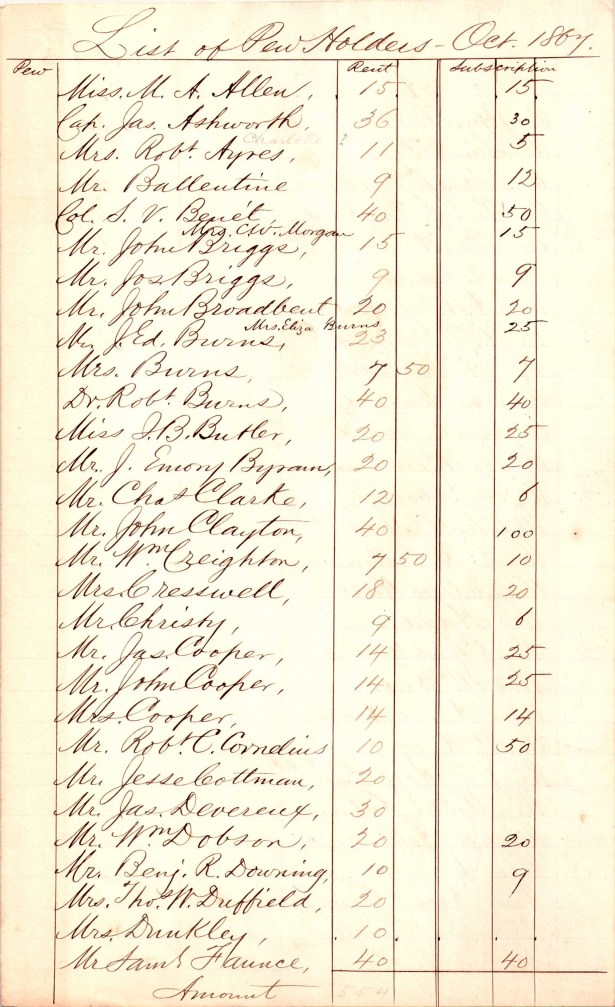 List of Pew Holders - Oct. 1867.
Pew Rent Subscription
Miss. M. A. Allen, 15 15
Cap. Jas. Ashworth, 36 30
Charlotte ?
Mrs. Robt. Ayres, 11 5
Mr. Ballentine 9 12
Col. S. V. Benét, 40 50
Mrs. C.W. Morgan
Mr. John Briggs, 15 15
Mr. Jos Briggs, 9 9
Mr. John Broadbent 20 20
Mrs. Eliza Burns
Mr. J. Ed. Burns, 23 25
Mrs. Burns, 7 50 7
Dr. Robt. Burns, 40 40
Miss J. B. Butler, 20 25
Mr. J. Emory Byram, 20 20
Mr. Chas Clarke, 12 6
Mr. John Clayton, 40 100
Mr. Wm Creighton, 7 50 10
Mrs. Cresswell, 18 20
Mr. Christy, 9 6
Mr. Jas. Cooper, 14 25
Mr. John Cooper, 14 25
Mrs. Cooper, 14 14
Mr. Robt. C. Cornelius 10 50
Mr. Jesse Cottman, 20
Mr. Jas. Devereux, 30
Mr. Wm Dobson, 20 20
Mr. Benj. R. Downing, 10 9
Mrs. Thos. W. Duffield, 20
Mrs. Dunkley, 10
Mr Saml Faunce, 40 40
Amount 554